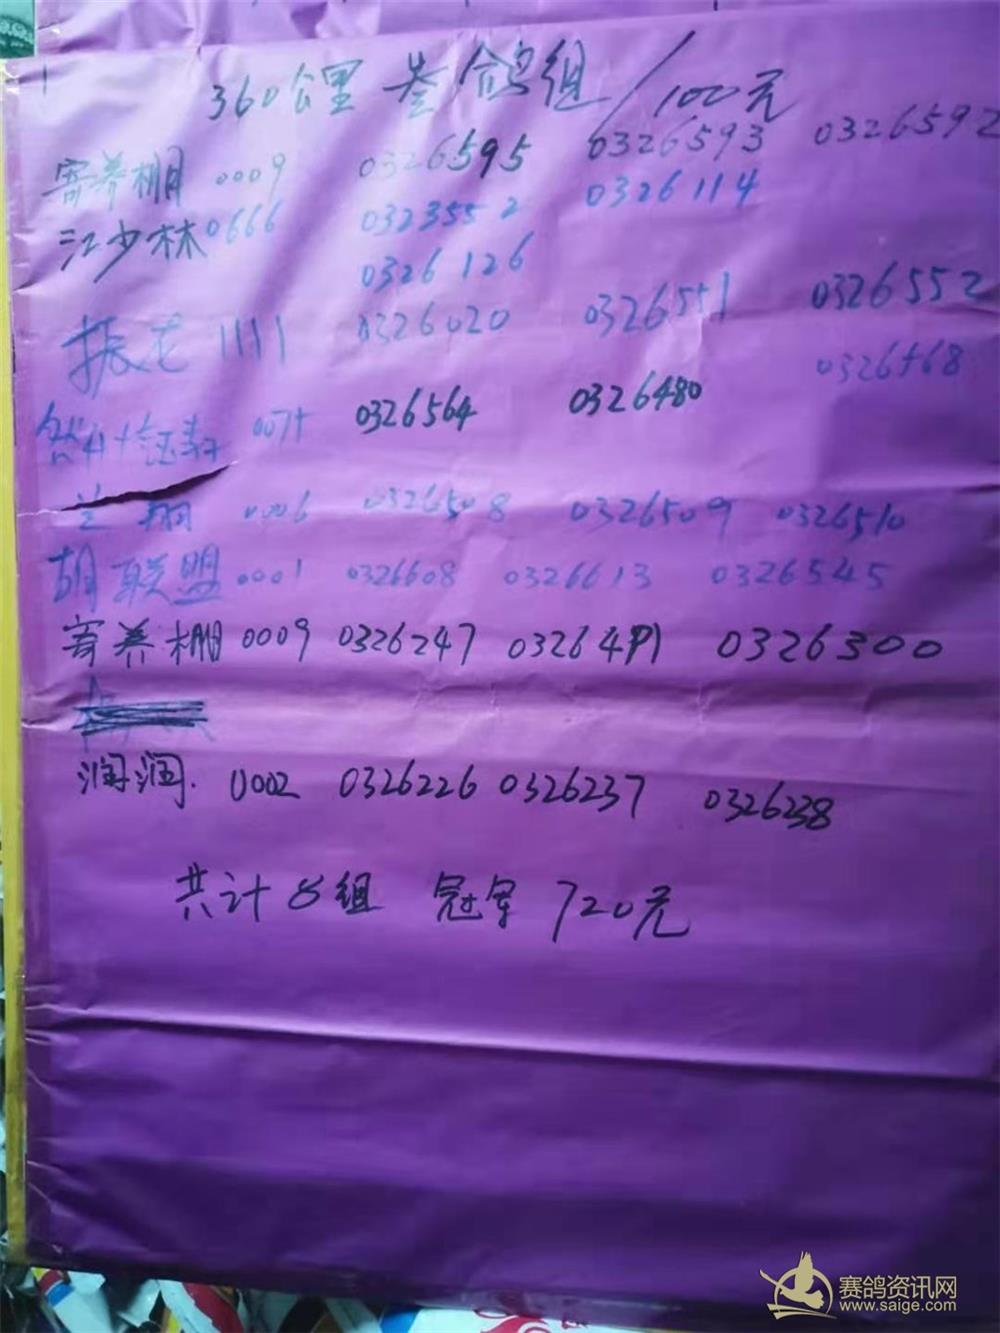 360公里 叁鸽组/100元
寄养棚 0009 0326595 0326593 0326592
江少林 0666 0323552 0326114
0326126
振龙 1111 0326020 0326551 0326552
0326564 0326480 0326468
兰翔 0006 0326508 0326509 0326510
胡联盟 0001 0326608 0326613 0326545
寄养棚 0009 0326247 0326491 0326300
润润. 0002 0326226 0326237 0326238
共计8组 冠军 720元
赛鸽资讯网
www.saige.com